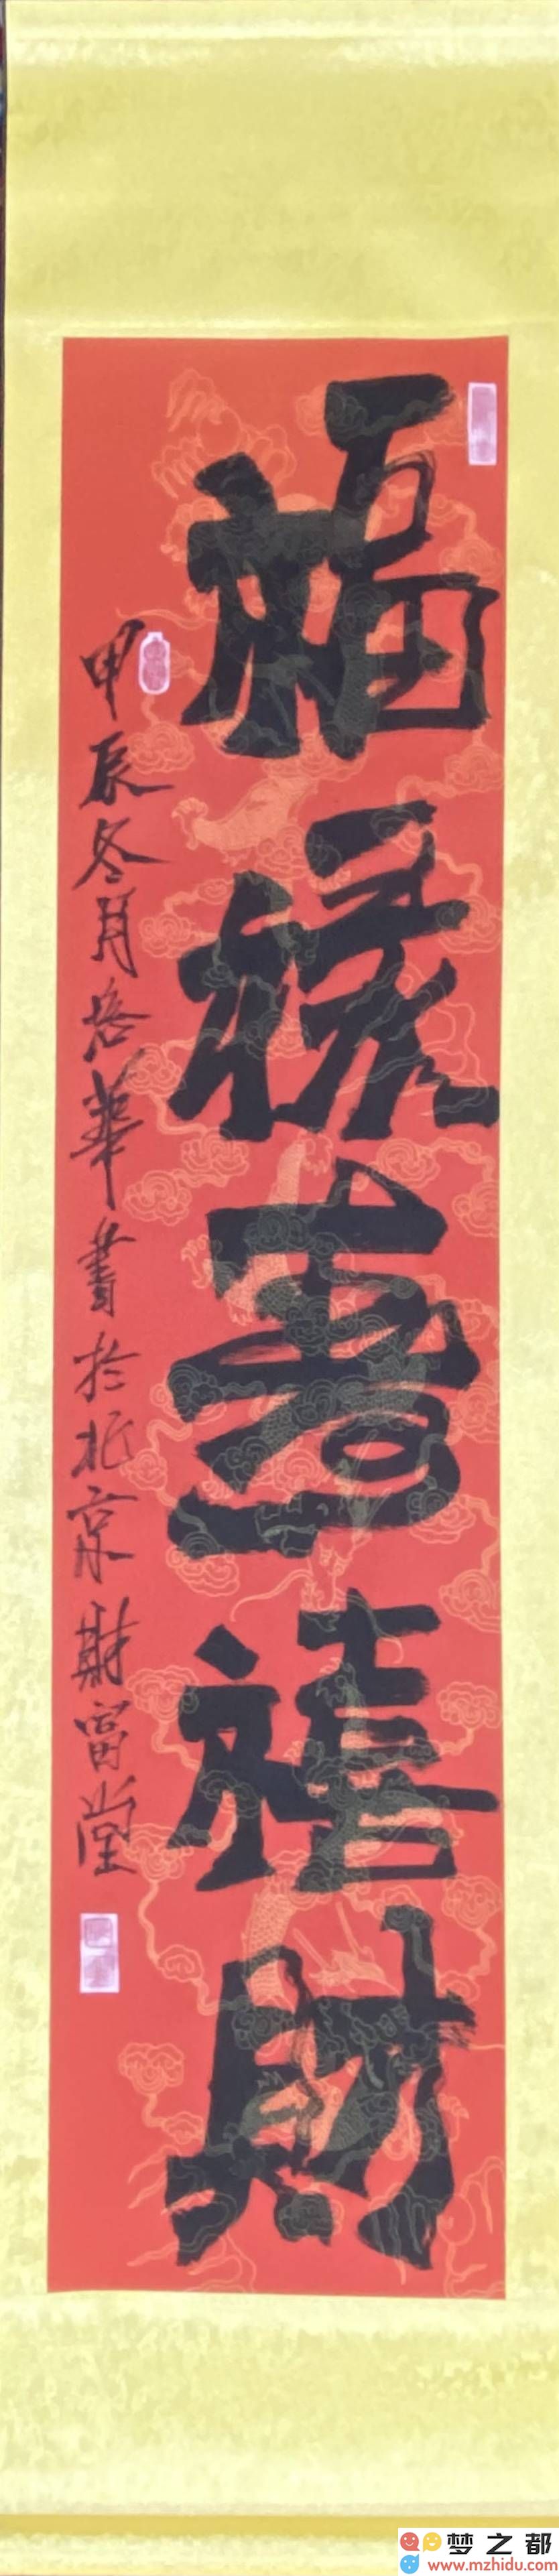 福祿壽禧財
甲辰冬月岳華書於北京財富堂
梦之都
www.mzhidu.com